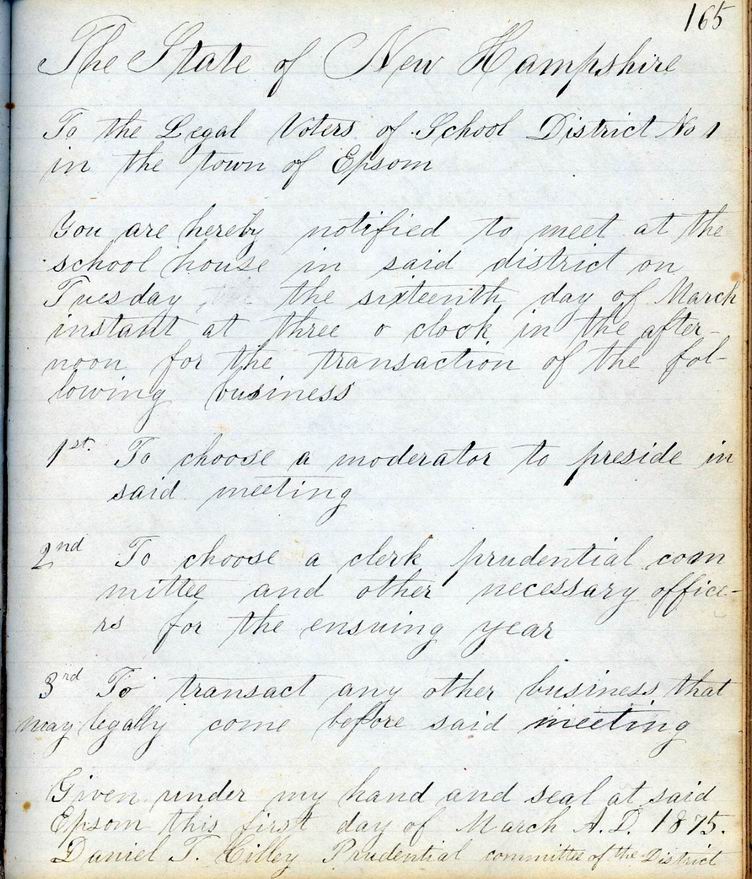 165
The State of New Hampshire
To the Legal Voters of School District No 1
in the town of Epsom
You are hereby notified to meet at the
school house in said district on
Tuesday the sixteenth day of March
instant at three o clock in the after-
noon for the transaction of the fol-
lowing business
1st. To choose a moderator to preside in
said meeting
2nd To choose a clerk prudential com
mittee and other necessary office-
rs for the ensuing year
3rd To transact any other business that
may legally come before said meeting
Given under my hand and seal at said
Epsom this first day of March A.D. 1875.
Daniel T. Cilley Prudential committee of the District